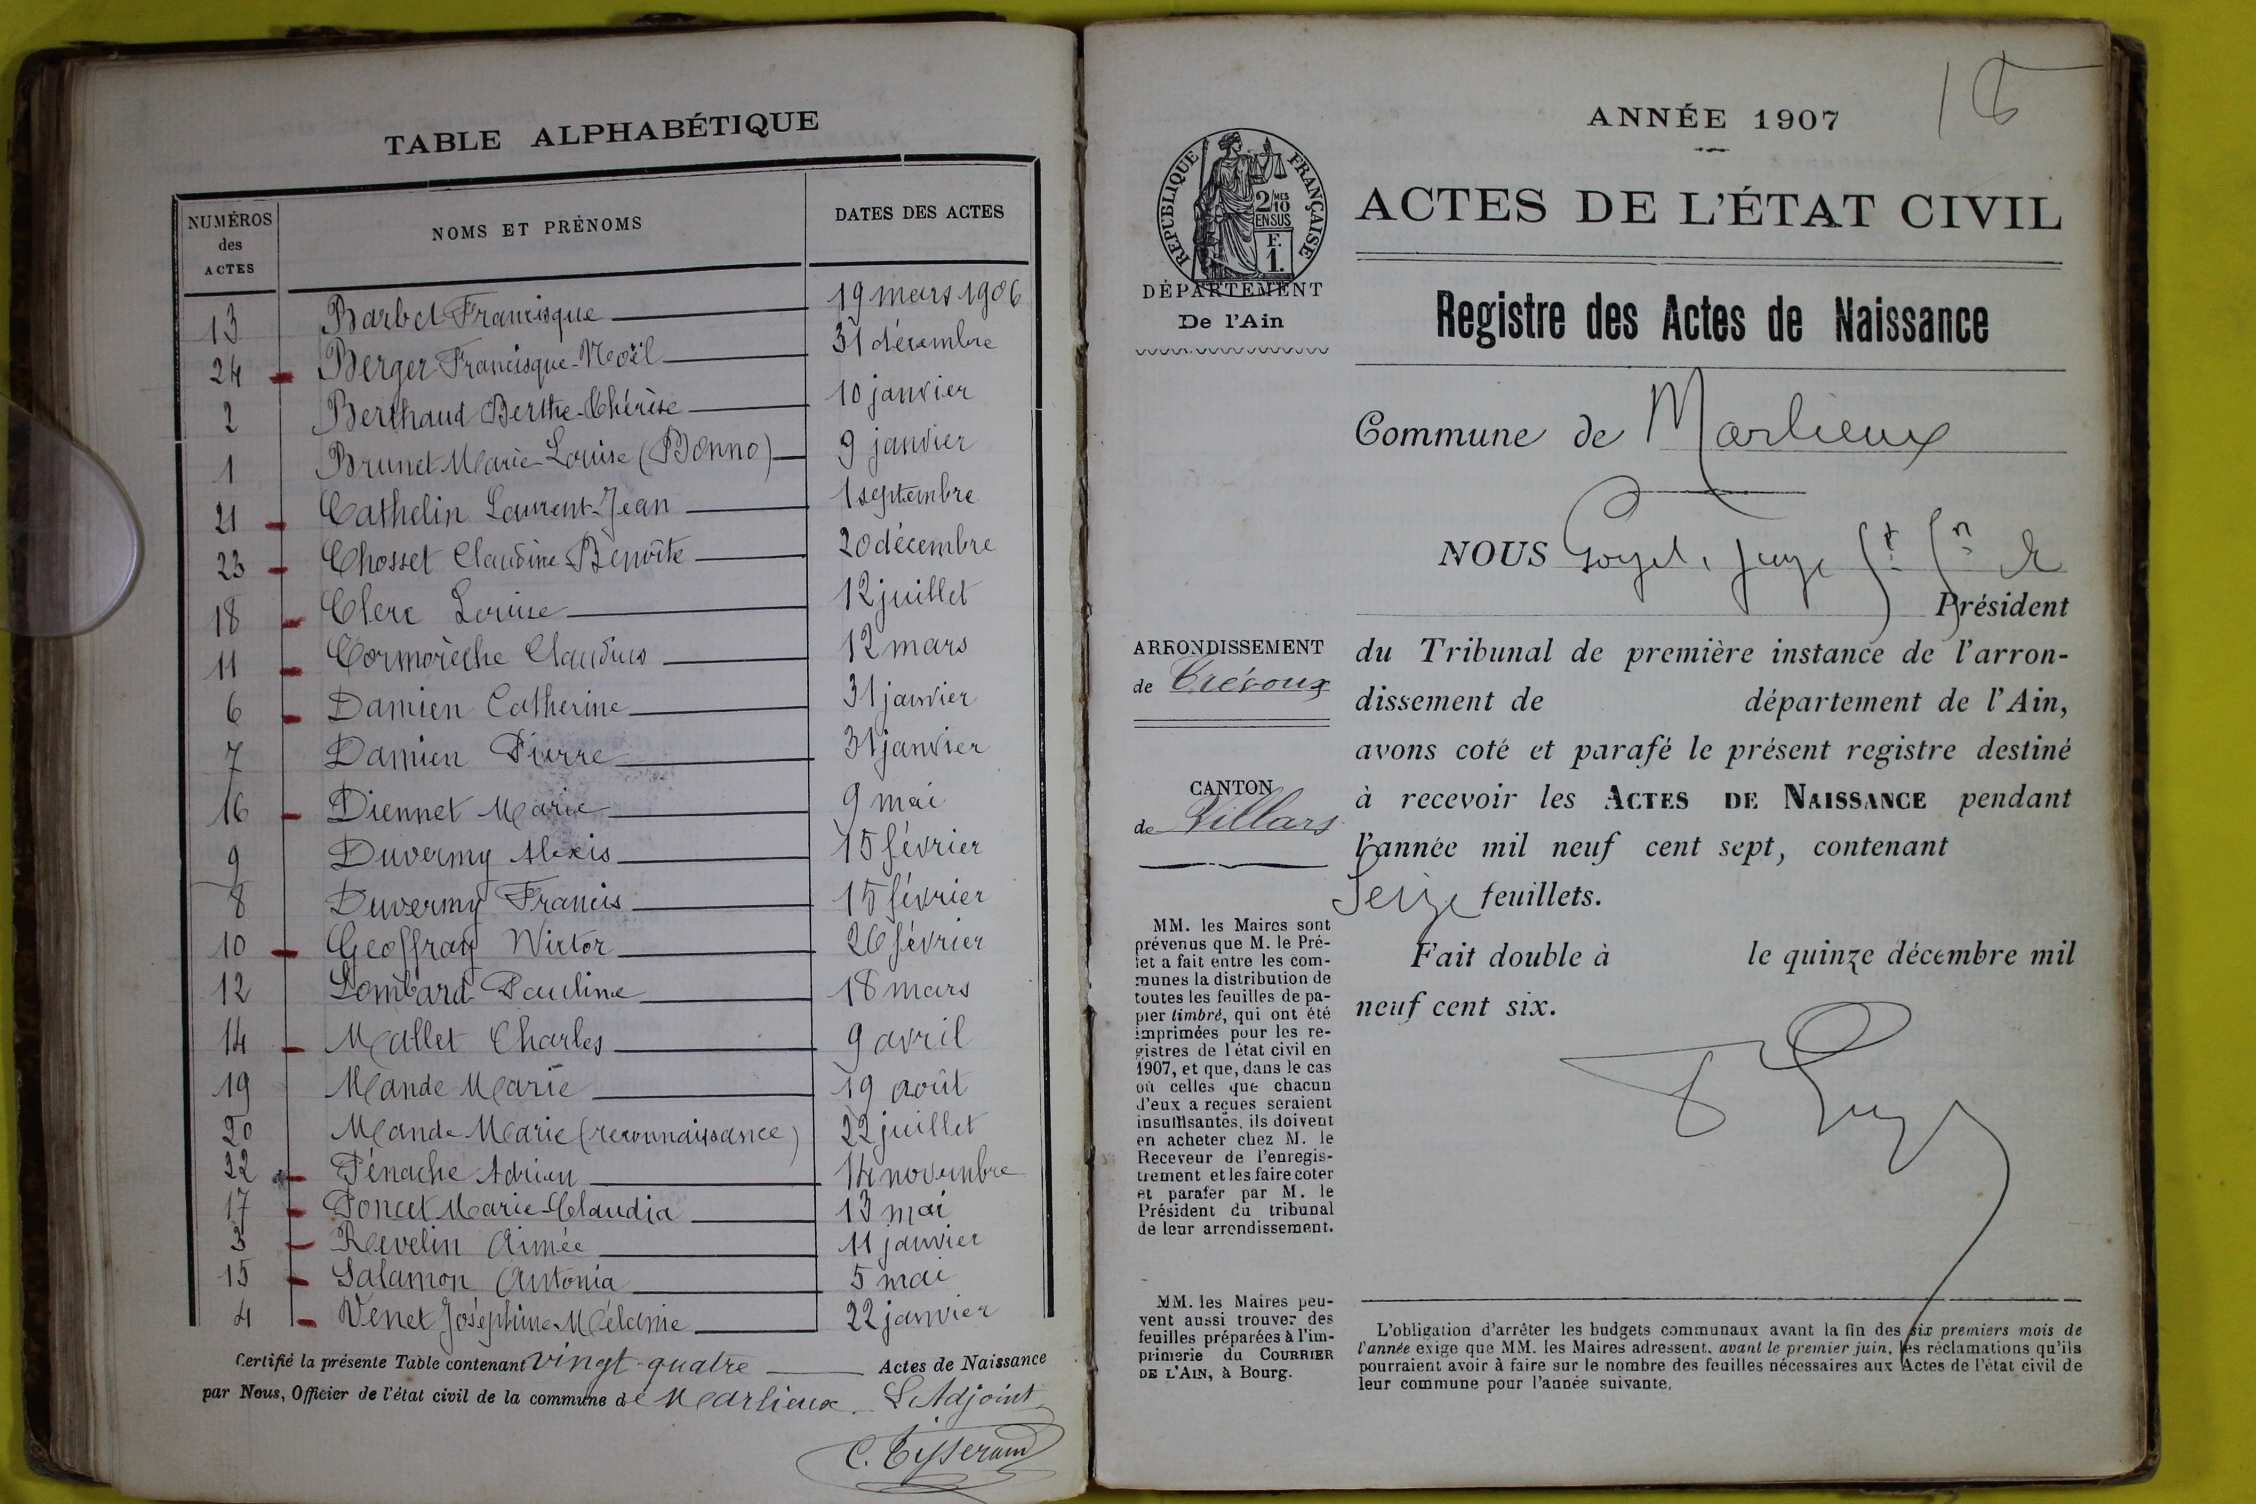 TABLE ALPHABÉTIQUE
NUMÉROS
des
ACTES
NOMS ET PRÉNOMS
DATES DES ACTES
13 Barbet Francisque 19 mars 1906
24 Berger Francisque-Noël 31 décembre
2 Berthaud Berthe-Thérèse 10 janvier
1 Brunet Marie-Louise (Bonno) 9 janvier
21 Cathelin Laurent-Jean 1 septembre
23 Chosset Claudine Benoîte 20 décembre
18 Clerc Louise 12 juillet
11 Cormorèche Claudius 12 mars
6 Damien Catherine 31 janvier
7 Damien Pierre 31 janvier
16 Diennet Marie 9 mai
9 Duvermy Alexis 15 février
8 Duvermy Francis 15 février
10 Geoffray Victor 26 février
12 Lombard Pauline 18 mars
14 Mallet Charles 9 avril
19 Mande Marie 19 août
20 Mande Marie (reconnaissance) 22 juillet
22 Pénache Adrien 14 novembre
17 Poncet Marie-Claudia 13 mai
3 Revelin Aimée 11 janvier
15 Salamon Antonia 5 mai
4 Venet Joséphine Mélanie 22 janvier
Certifié la présente Table contenant vingt-quatre Actes de Naissance
par Nous, Officier de l'état civil de la commune de Marlieux. L'Adjoint
C. Tisserand
ANNÉE 1907
RÉPUBLIQUE FRANÇAISE
2/10 MES
EN SUS
F.
1.
ACTES DE L'ÉTAT CIVIL
DÉPARTEMENT
De l'Ain
Registre des Actes de Naissance
Commune de Marlieux
NOUS Goyet, juge
Président
ARRONDISSEMENT
de Trévoux
du Tribunal de première instance de l'arron-
dissement de département de l'Ain,
avons coté et parafé le présent registre destiné
CANTON
de Villars
à recevoir les ACTES DE NAISSANCE pendant
l'année mil neuf cent sept, contenant
Seize feuillets.
Fait double à le quinze décembre mil
neuf cent six.
MM. les Maires sont
prévenus que M. le Pré-
fet a fait entre les com-
munes la distribution de
toutes les feuilles de pa-
pier timbré, qui ont été
imprimées pour les re-
gistres de l'état civil en
1907, et que, dans le cas
où celles que chacun
d'eux a reçues seraient
insuffisantes, ils doivent
en acheter chez M. le
Receveur de l'enregis-
trement et les faire coter
et parafer par M. le
Président du tribunal
de leur arrondissement.
MM. les Maires peu-
vent aussi trouver des
feuilles préparées à l'im-
primerie du COURRIER
DE L'AIN, à Bourg.
L'obligation d'arrêter les budgets communaux avant la fin des six premiers mois de
l'année exige que MM. les Maires adressent, avant le premier juin, les réclamations qu'ils
pourraient avoir à faire sur le nombre des feuilles nécessaires aux Actes de l'état civil de
leur commune pour l'année suivante.